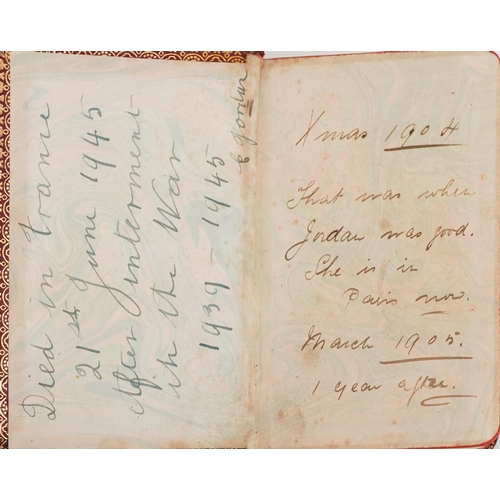 Died in France
21st June 1945
After interment
in the War
1939 - 1945
E Jordan
Xmas 1904
That was when
Jordan was good.
She is in
Paris now.
March 1905.
1 year after.